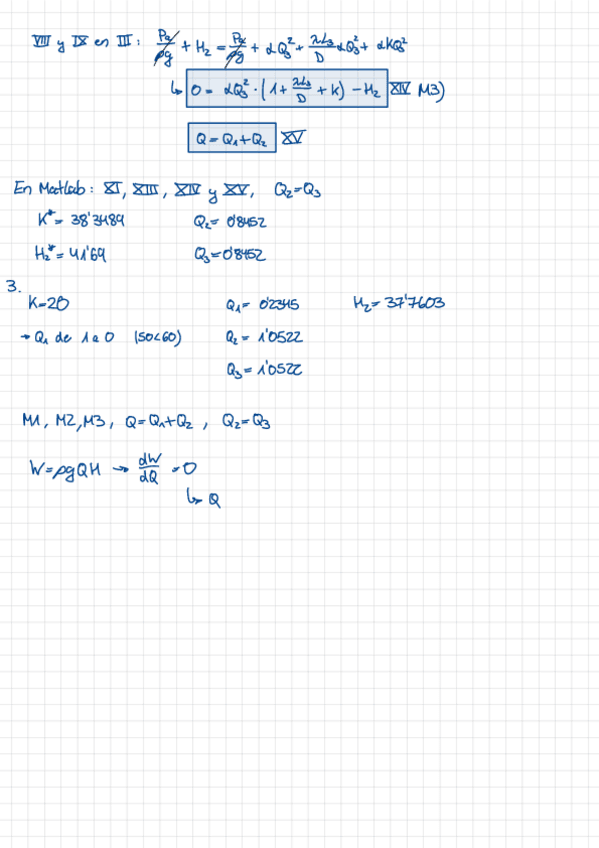 VIII y IX en III: Pa/ρg + H₂ = Pa/ρg + αQ₃² + λL₃/D αQ₃² + αKQ₃²
↳ 0 = αQ₃² · (1 + λL₃/D + k) - H₂ XIV M3)
Q = Q₁ + Q₂ XV
En Matlab: XI, XIII, XIV y XV, Q₂=Q₃
K* = 38'3489 Q₂ = 0'8452
H₂* = 41'69 Q₃ = 0'8452
3.
K=20 Q₁ = 0'2345 H₂ = 37'7603
→ Q₁ de 1 a 0 (50<60) Q₂ = 1'0522
Q₃ = 1'0522
M1, M2, M3, Q=Q₁+Q₂, Q₂=Q₃
W=ρgQH → dW/dQ = 0
↳ Q